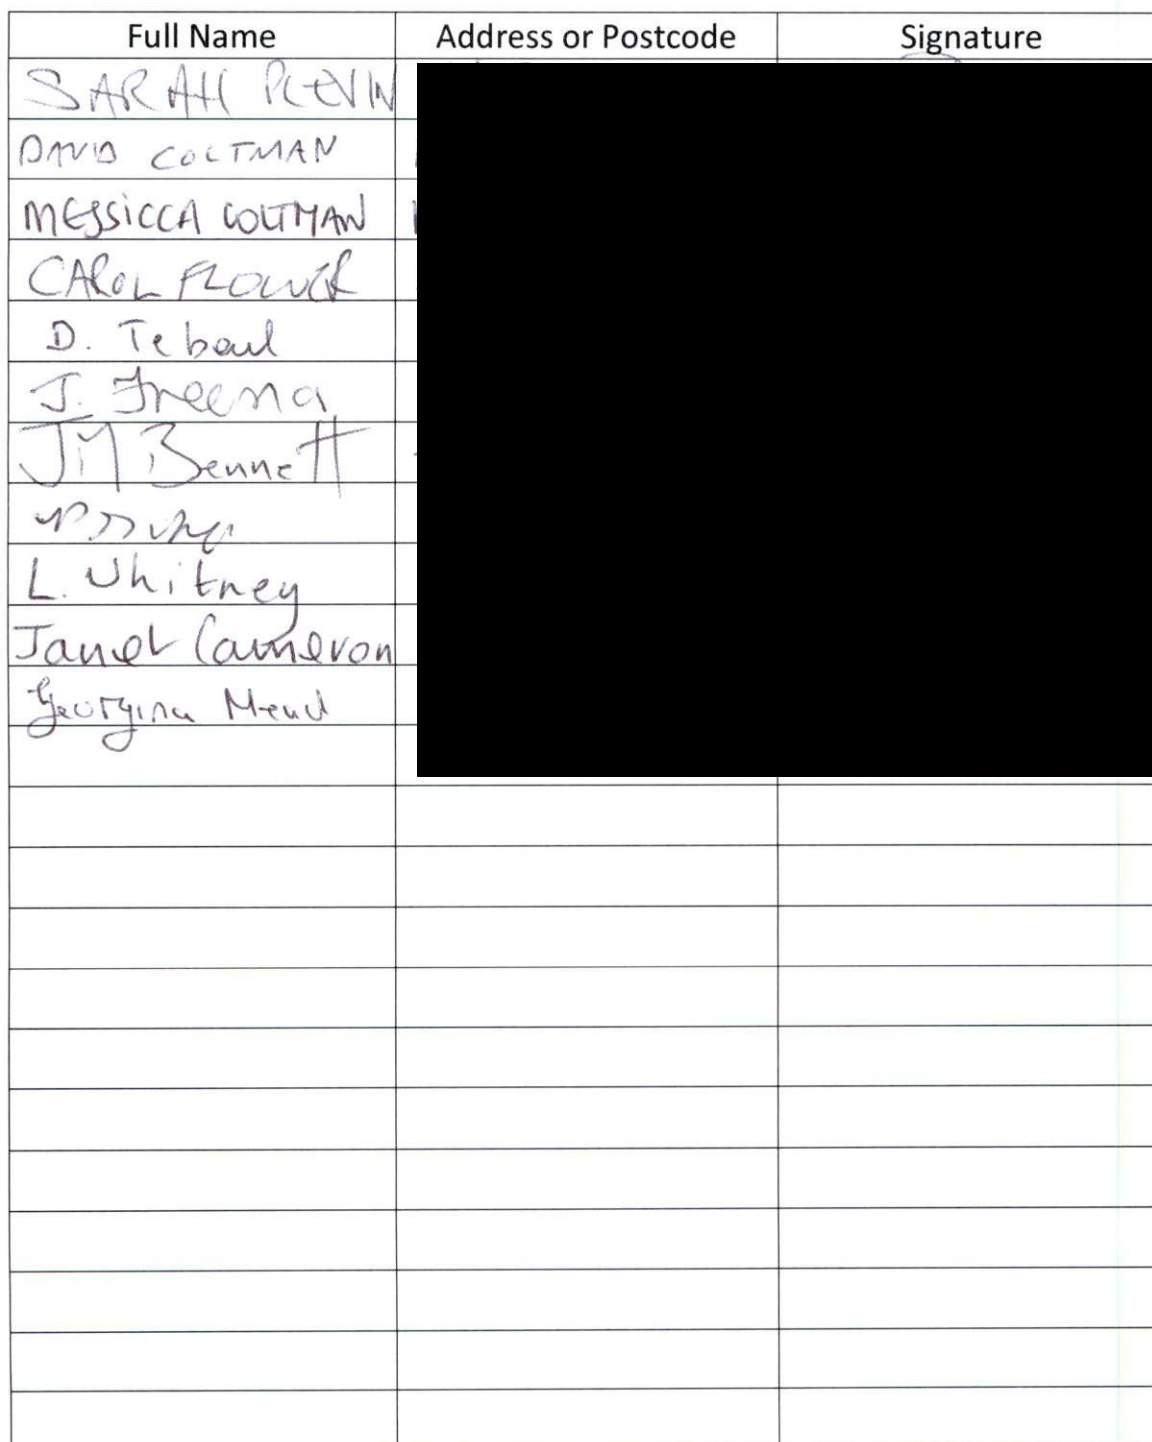 Full Name Address or Postcode Signature
SARAH PLEVIN
DAVID COLTMAN
MESSICCA COLTMAN
CAROL FLOWER
D. Tebout
J. Freena
Jim Bennett
L. Whitney
Janet Cameron
Georgina Mead